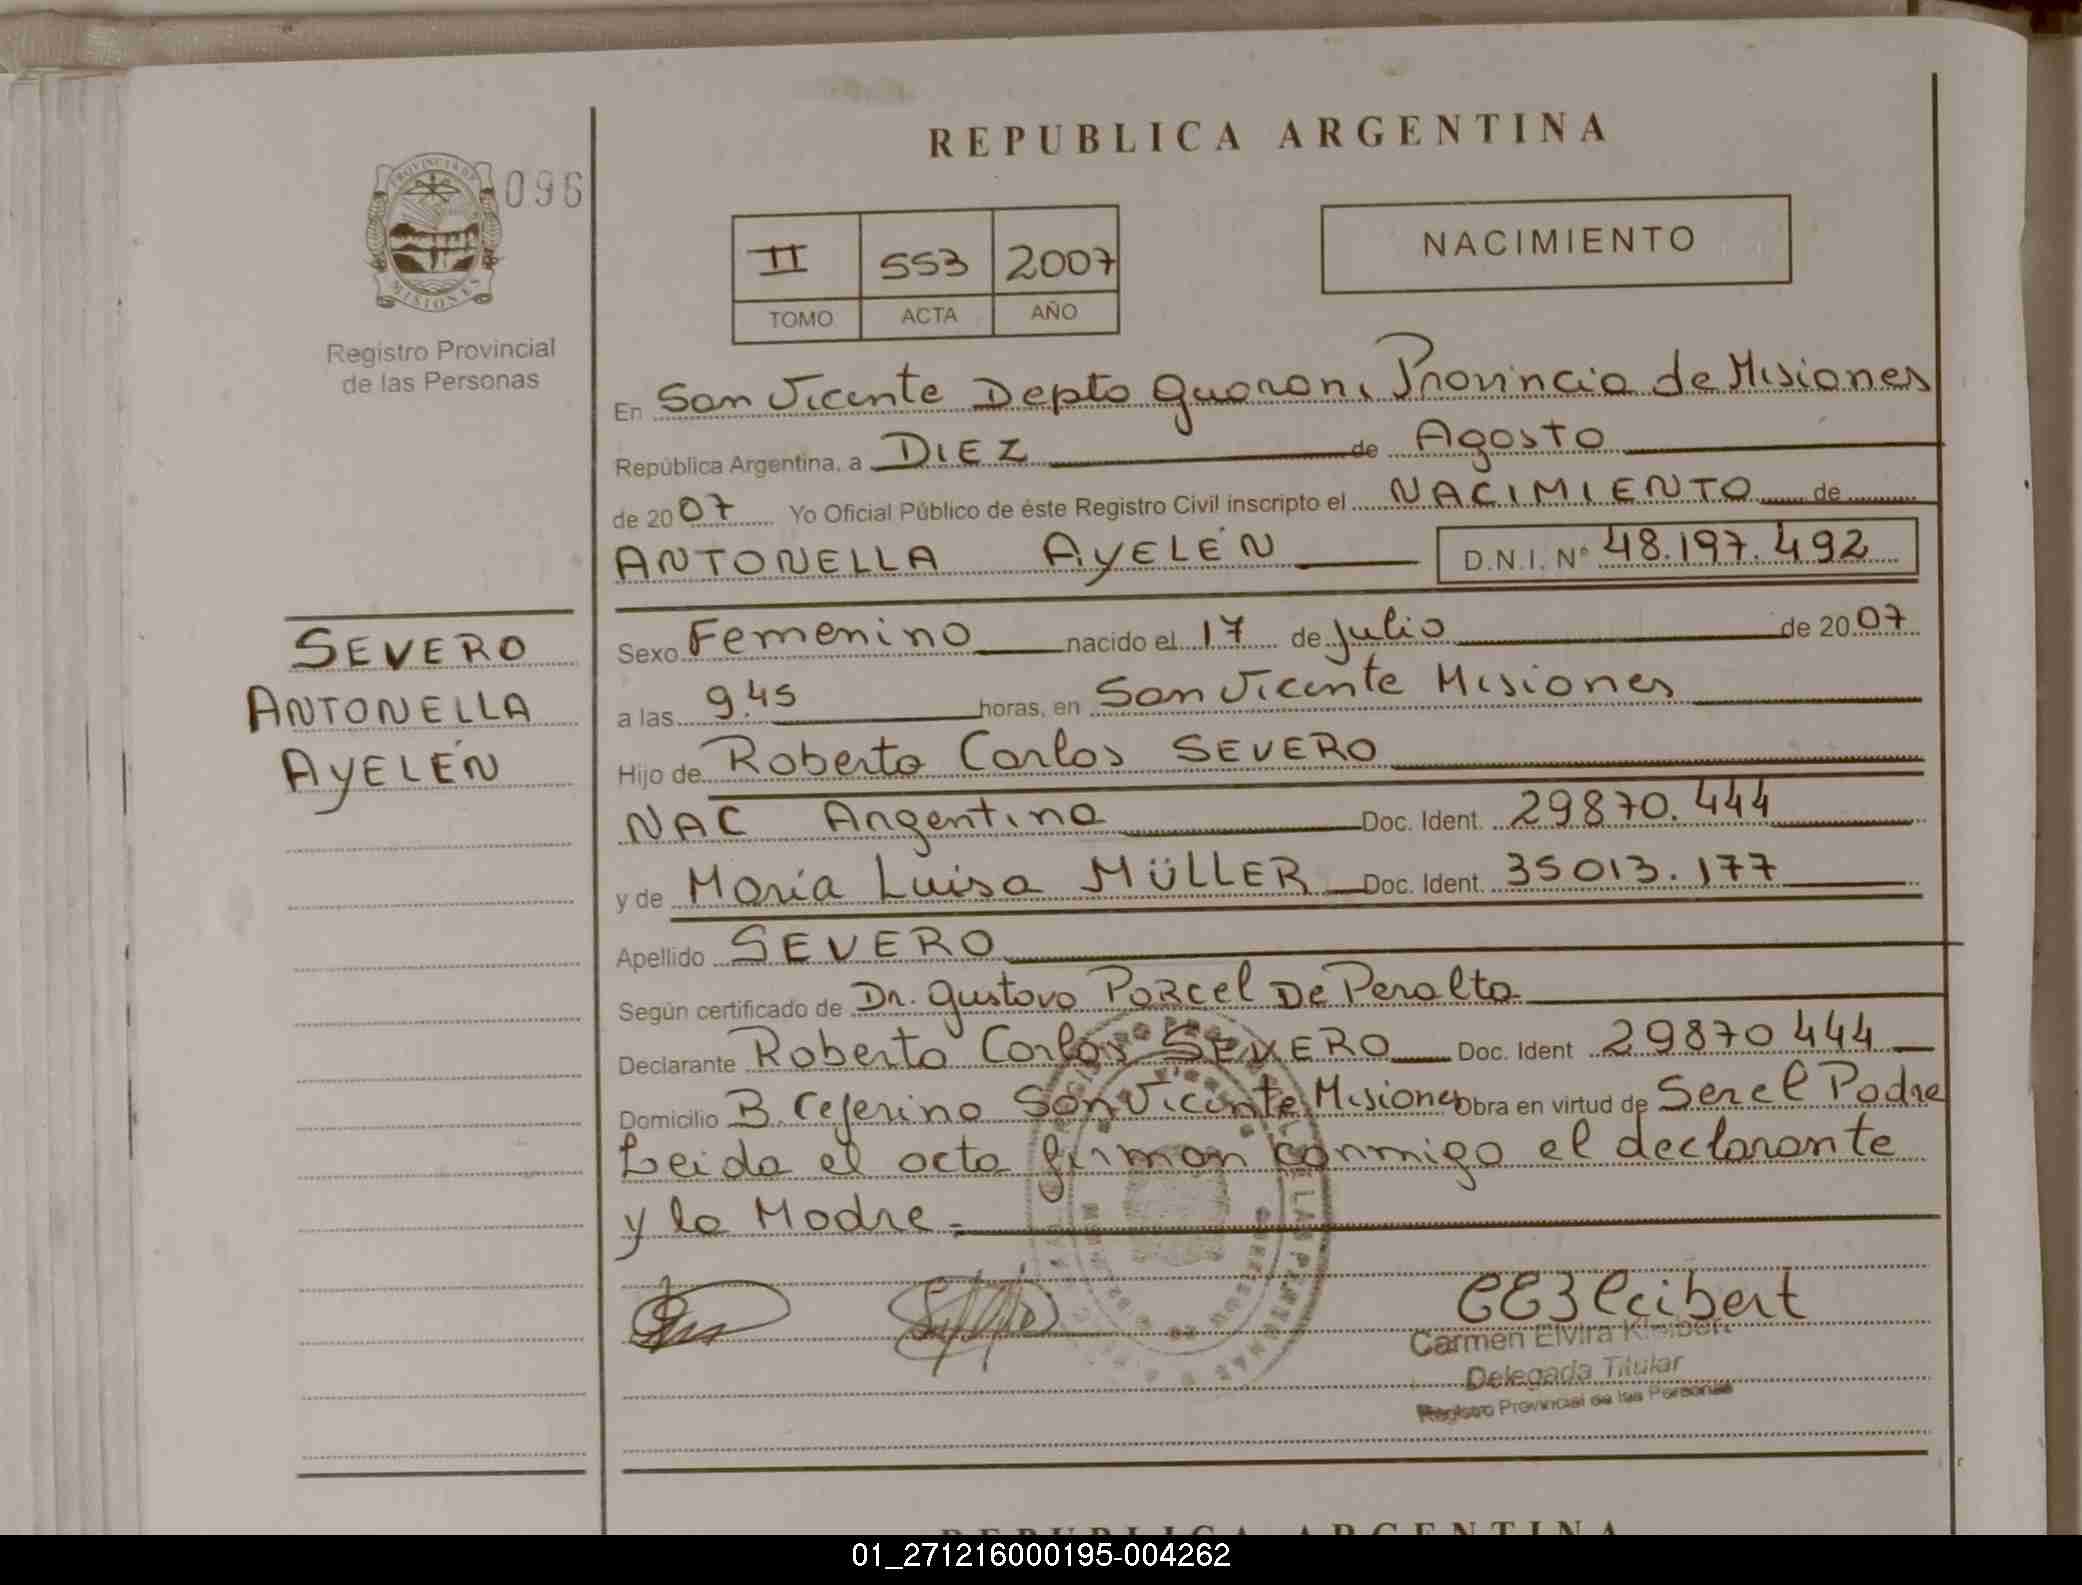 REPUBLICA ARGENTINA
PROVINCIA DE
MISIONES
096
Registro Provincial
de las Personas
II 553 2007
TOMO ACTA AÑO
NACIMIENTO
En San Vicente Depto Guarani Provincia de Misiones
República Argentina, a DIEZ de Agosto
de 2007 Yo Oficial Público de éste Registro Civil inscripto el NACIMIENTO de
ANTONELLA AYELÉN D.N.I. Nº 48.197.492
SEVERO
ANTONELLA
AYELÉN
Sexo Femenino nacido el 17 de Julio de 2007
a las 9.45 horas, en San Vicente Misiones
Hijo de Roberto Carlos SEVERO
NAC Argentina Doc. Ident. 29870.444
y de María Luisa MÜLLER Doc. Ident. 35013.177
Apellido SEVERO
Según certificado de Dr. Gustavo Porcel De Peralta
Declarante Roberto Carlos SEVERO Doc. Ident 29870444
Domicilio B. Ceferino San Vicente Misiones Obra en virtud de Ser el Padre
Leida el acta firman conmigo el declarante
y la Madre.=
CEKleibert
Carmen Elvira Kleibert
Delegada Titular
Registro Provincial de las Personas
REPUBLICA ARGENTINA
01_271216000195-004262